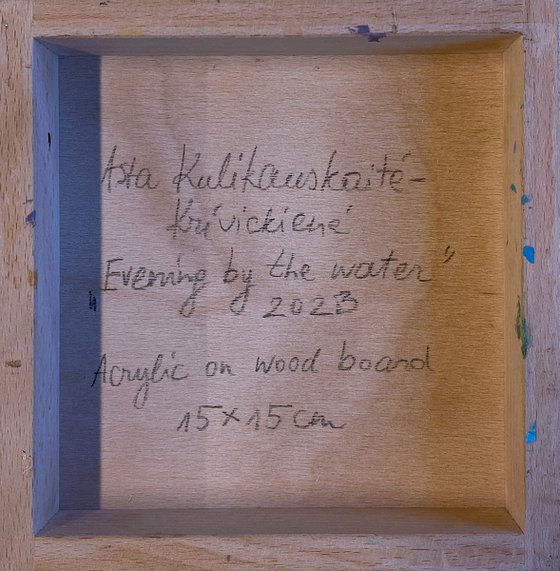 Asta Kulikauskaitė-
Krivickienė
"Evening by the water"
2023
Acrylic on wood board
15×15 cm